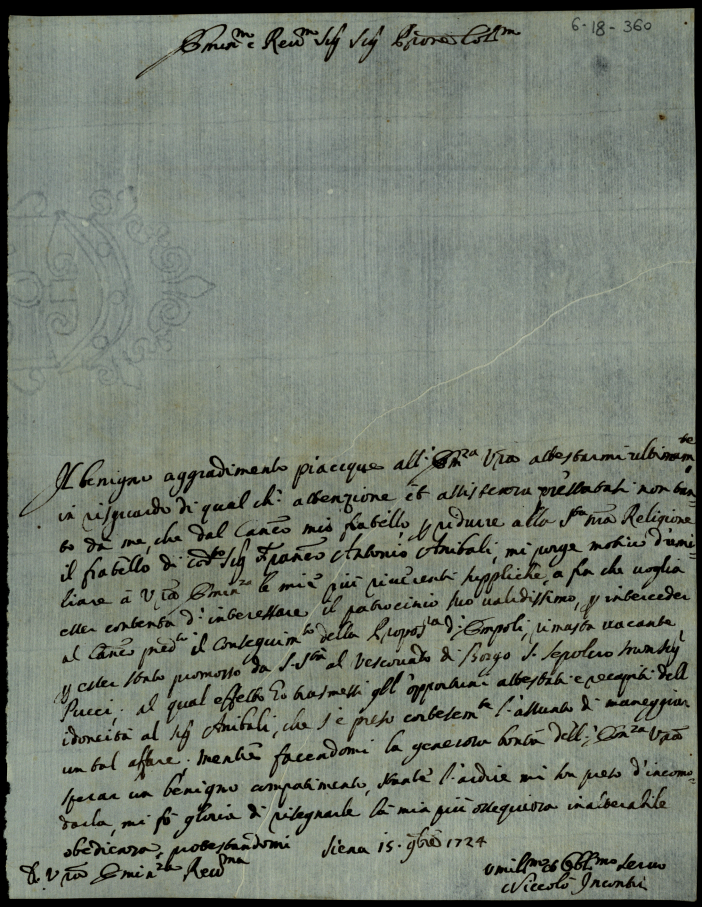 6-18-360
Emin.mo e Rev.mo Sig.r Sig.r P̄rone Coll.mo
Il benigno aggradimento piacque all' Em.za Vr̄a attestarmi ultimam.te
in risguardo di qual che attenzione et assistenza prestatati non tan-
to da me, che dal Canc.o mio fratello, p̄ ridurre alla S.ta nr̄a Religione
il fratello di cod.o Sig.r Franc.o Antonio Anibali, mi porge motivo d'umi-
liare à Vr̄a Emin.za le mie più riverenti suppliche, a fin che voglia
esser contenta d' interessare il patrocinio suo validissimo, p̄ interceder
al Canc.o pred.to il conseguim.to della Propos.ra d'Empoli, rimasta vacante
p̄ esser stato promosso da S. S.tà al Vescovato di Borgo S. Sepolcro Monsig.r
Pucci; al qual effetto Io trasmetti gl' opportuni attestati e recapiti dell'
idoneità al Sig.r Anibali, che s' è preso cortesem.te l'assunto di maneggiar
un tal affare. Mentre facendomi la generosa bontà dell' Em.za Vr̄a
sperar un benigno compatimento, stante l'ardire mi son preso d'incomo-
darla, mi fò gloria di rasegnarle la mia più ossequiosa inalterabile
obedienza, protestandomi
Siena 15. 9bre 1724
D. Vr̄a Emin.za Rev.ma
Umil.mo et Obbl.mo Servo
Niccolò Incontri